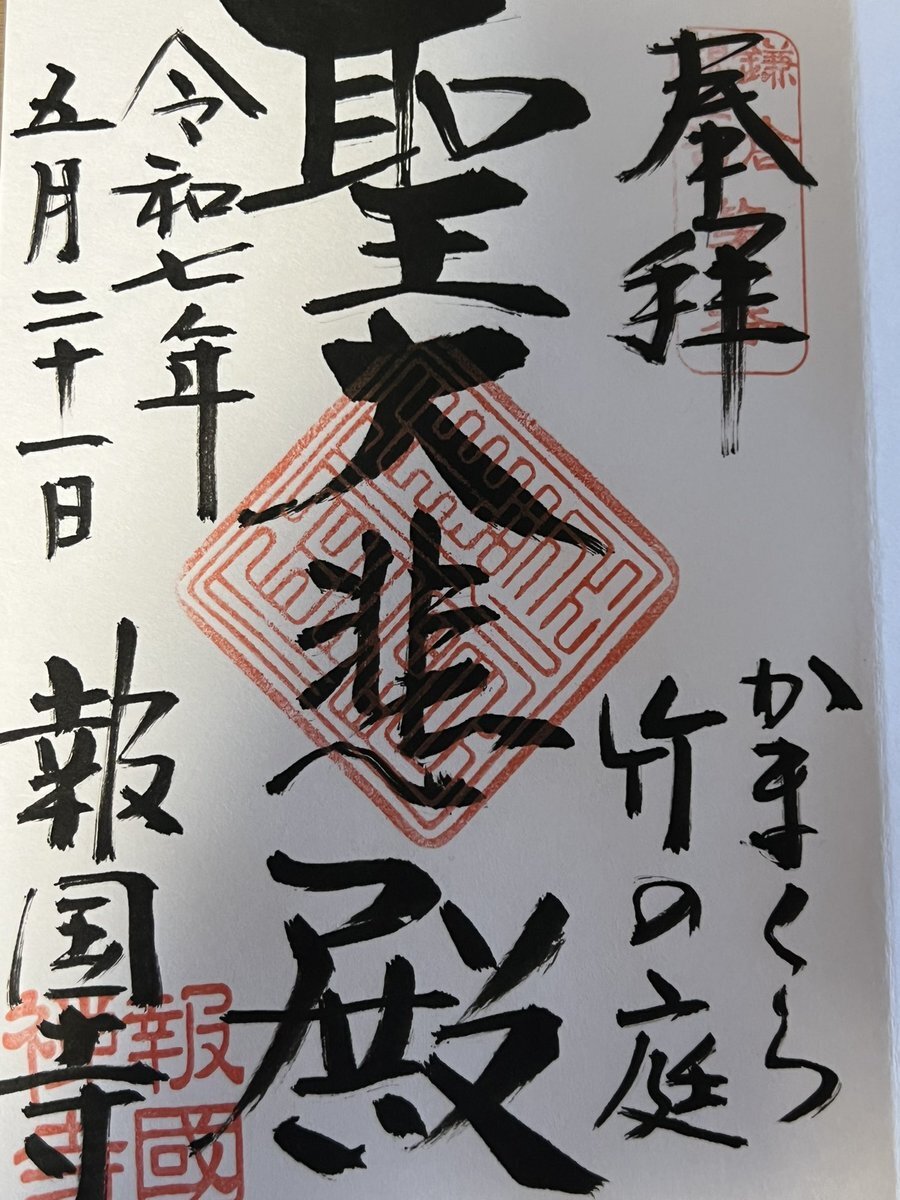 奉拝
かまくら
竹の庭
聖大悲殿
令和七年
五月二十一日
報国寺
報國
禅寺